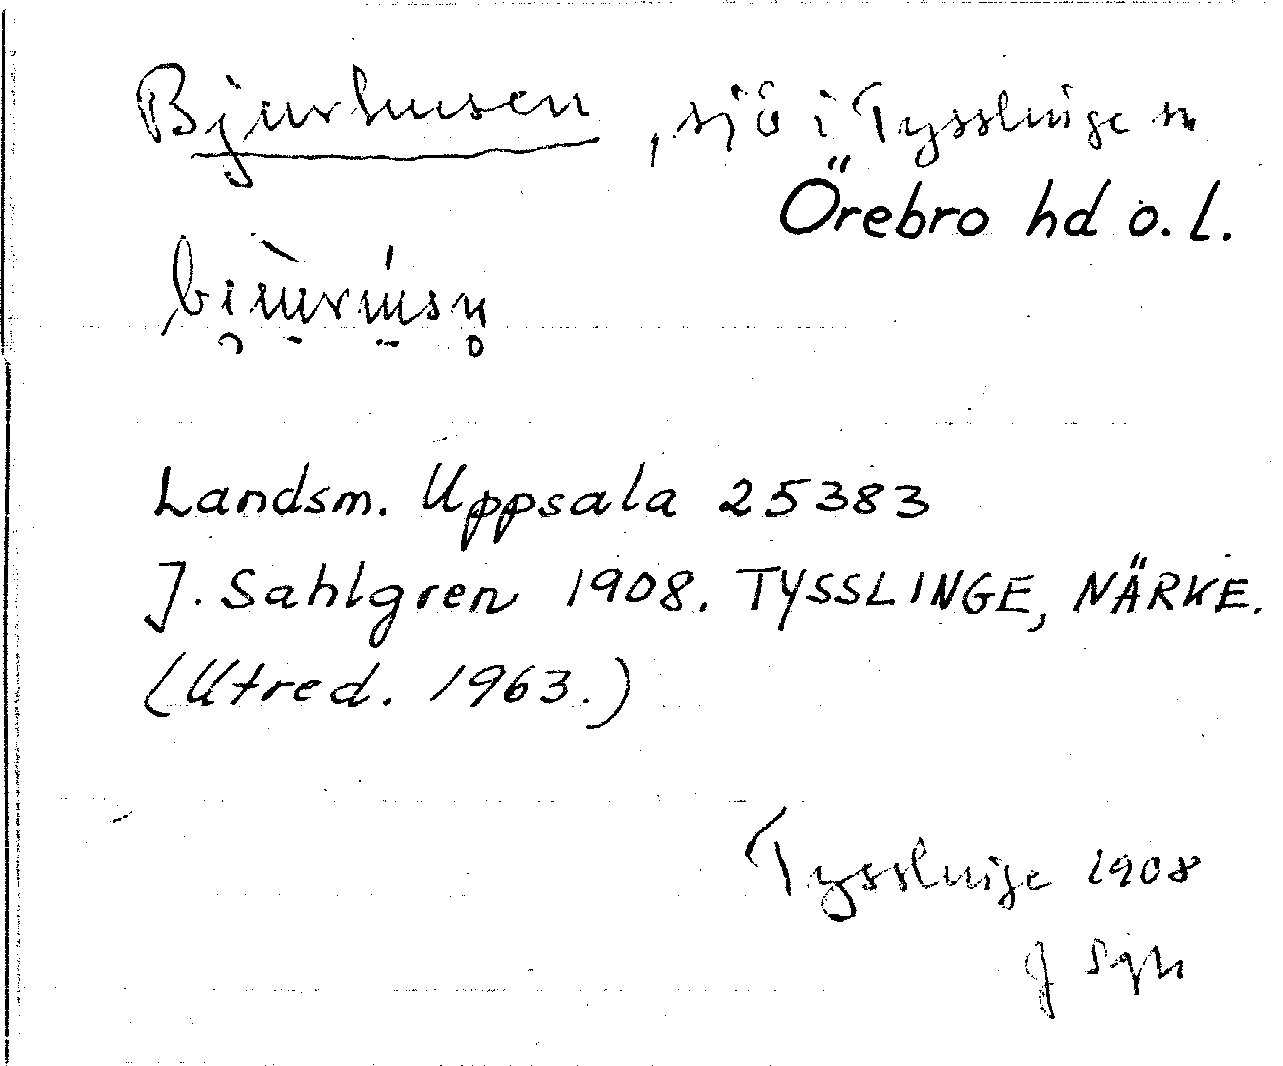 Bjurhusen, sjö i Tysslinge sn
Örebro hd o. l.
Landsm. Uppsala 25383
J. Sahlgren 1908. TYSSLINGE, NÄRKE.
(Utred. 1963.)
Tysslinge 1908
J Sgn